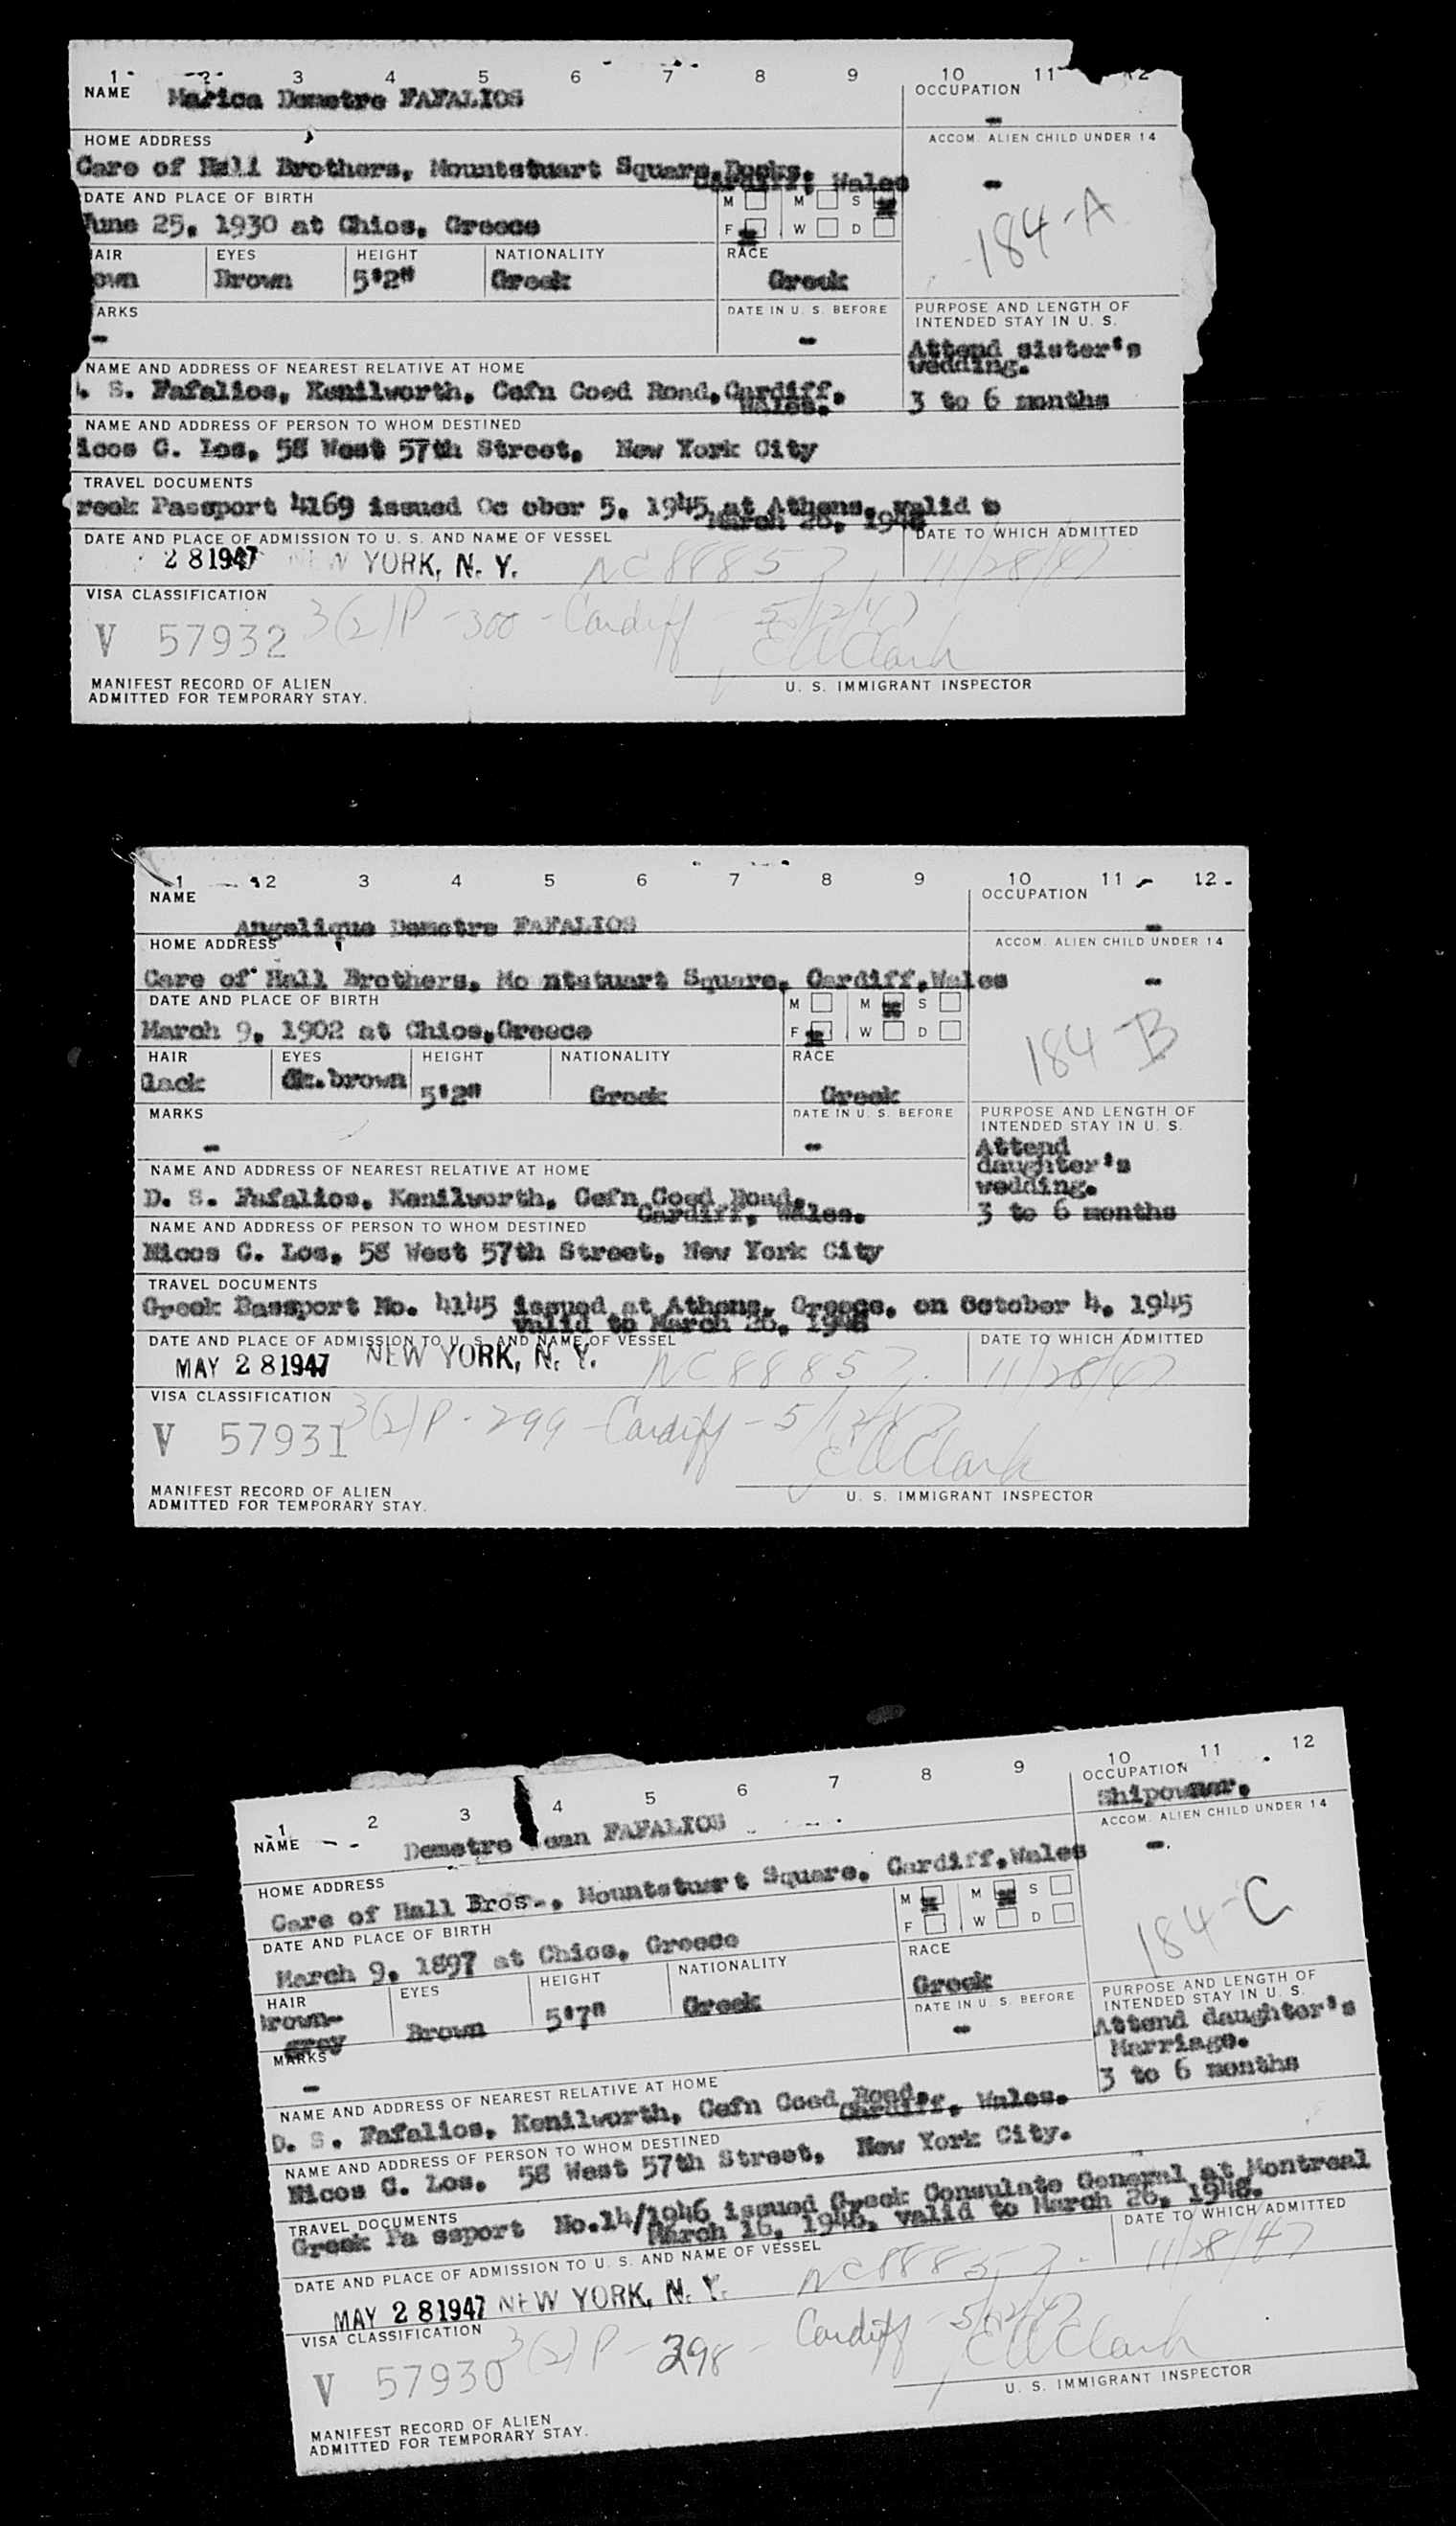 1 2 3 4 5 6 7 8 9 10 11 12
NAME Marica Demetre FAFALIOS
OCCUPATION
-
HOME ADDRESS
Care of Hall Brothers, Mountstuart Square, Docks,
Cardiff, Wales
ACCOM. ALIEN CHILD UNDER 14
-
DATE AND PLACE OF BIRTH
June 25, 1930 at Chios, Greece
M M S
F W D
184-A
HAIR EYES HEIGHT NATIONALITY RACE
own Brown 5'2" Greek Greek
MARKS
-
DATE IN U. S. BEFORE
-
PURPOSE AND LENGTH OF
INTENDED STAY IN U. S.
Attend sister's
wedding.
3 to 6 months
NAME AND ADDRESS OF NEAREST RELATIVE AT HOME
. S. Fafalios, Kenilworth, Cefn Coed Road, Cardiff,
Wales.
NAME AND ADDRESS OF PERSON TO WHOM DESTINED
icos G. Los, 58 West 57th Street, New York City
TRAVEL DOCUMENTS
reek Passport 4169 issued Oc ober 5, 1945 at Athens, valid to
March 26, 1948
DATE AND PLACE OF ADMISSION TO U. S. AND NAME OF VESSEL
DATE TO WHICH ADMITTED
2 8 1947 NEW YORK, N. Y. NC 88857 11/28/47
VISA CLASSIFICATION
V 57932 3(2)P - 300 - Cardiff - 5/12/47
E A Clark
MANIFEST RECORD OF ALIEN
ADMITTED FOR TEMPORARY STAY.
U. S. IMMIGRANT INSPECTOR
1 2 3 4 5 6 7 8 9 10 11 12
NAME
Angelique Demetre FAFALIOS
OCCUPATION
-
HOME ADDRESS
Care of Hall Brothers, Mo ntstuart Square, Cardiff, Wales
ACCOM. ALIEN CHILD UNDER 14
-
DATE AND PLACE OF BIRTH
March 9, 1902 at Chios, Greece
M M S
F W D
184 B
HAIR EYES HEIGHT NATIONALITY RACE
lack dk.brown 5'2" Greek Greek
MARKS
-
DATE IN U. S. BEFORE
-
PURPOSE AND LENGTH OF
INTENDED STAY IN U. S.
Attend
daughter's
wedding.
3 to 6 months
NAME AND ADDRESS OF NEAREST RELATIVE AT HOME
D. S. Fafalios, Kenilworth, Cefn Coed Road,
Cardiff, Wales.
NAME AND ADDRESS OF PERSON TO WHOM DESTINED
Nicos G. Los, 58 West 57th Street, New York City
TRAVEL DOCUMENTS
Greek Passport No. 4145 issued at Athens, Greece, on October 4, 1945
valid to March 26, 1948
DATE AND PLACE OF ADMISSION TO U. S. AND NAME OF VESSEL
DATE TO WHICH ADMITTED
MAY 2 8 1947 NEW YORK, N. Y. NC 88857. 11/28/47
VISA CLASSIFICATION
V 57931 3(2)P - 299 - Cardiff - 5/12/47
E A Clark
MANIFEST RECORD OF ALIEN
ADMITTED FOR TEMPORARY STAY.
U. S. IMMIGRANT INSPECTOR
1 2 3 4 5 6 7 8 9 10 11 12
NAME Demetre FAFALIOS
OCCUPATION
Shipowner.
HOME ADDRESS
Care of Hall Bros., Mountstuart Square, Cardiff, Wales
ACCOM. ALIEN CHILD UNDER 14
-.
DATE AND PLACE OF BIRTH
March 9, 1897 at Chios, Greece
M M S
F W D
184-C
HAIR EYES HEIGHT NATIONALITY RACE
brown-
grey Brown 5'7" Greek Greek
MARKS
-
DATE IN U. S. BEFORE
-
PURPOSE AND LENGTH OF
INTENDED STAY IN U. S.
Attend daughter's
Marriage.
3 to 6 months
NAME AND ADDRESS OF NEAREST RELATIVE AT HOME
D. S. Fafalios, Kenilworth, Cefn Coed Road,
Cardiff, Wales.
NAME AND ADDRESS OF PERSON TO WHOM DESTINED
Nicos G. Los, 58 West 57th Street, New York City.
TRAVEL DOCUMENTS
Greek Pa ssport No.14/1946 issued Greek Consulate General at Montreal
March 16, 1946, valid to March 26, 1948.
DATE AND PLACE OF ADMISSION TO U. S. AND NAME OF VESSEL
DATE TO WHICH ADMITTED
MAY 2 8 1947 NEW YORK, N. Y. NC 88857. 11/28/47
VISA CLASSIFICATION
V 57930 3(2)P - 298 - Cardiff - 5/12/47
E A Clark
MANIFEST RECORD OF ALIEN
ADMITTED FOR TEMPORARY STAY.
U. S. IMMIGRANT INSPECTOR